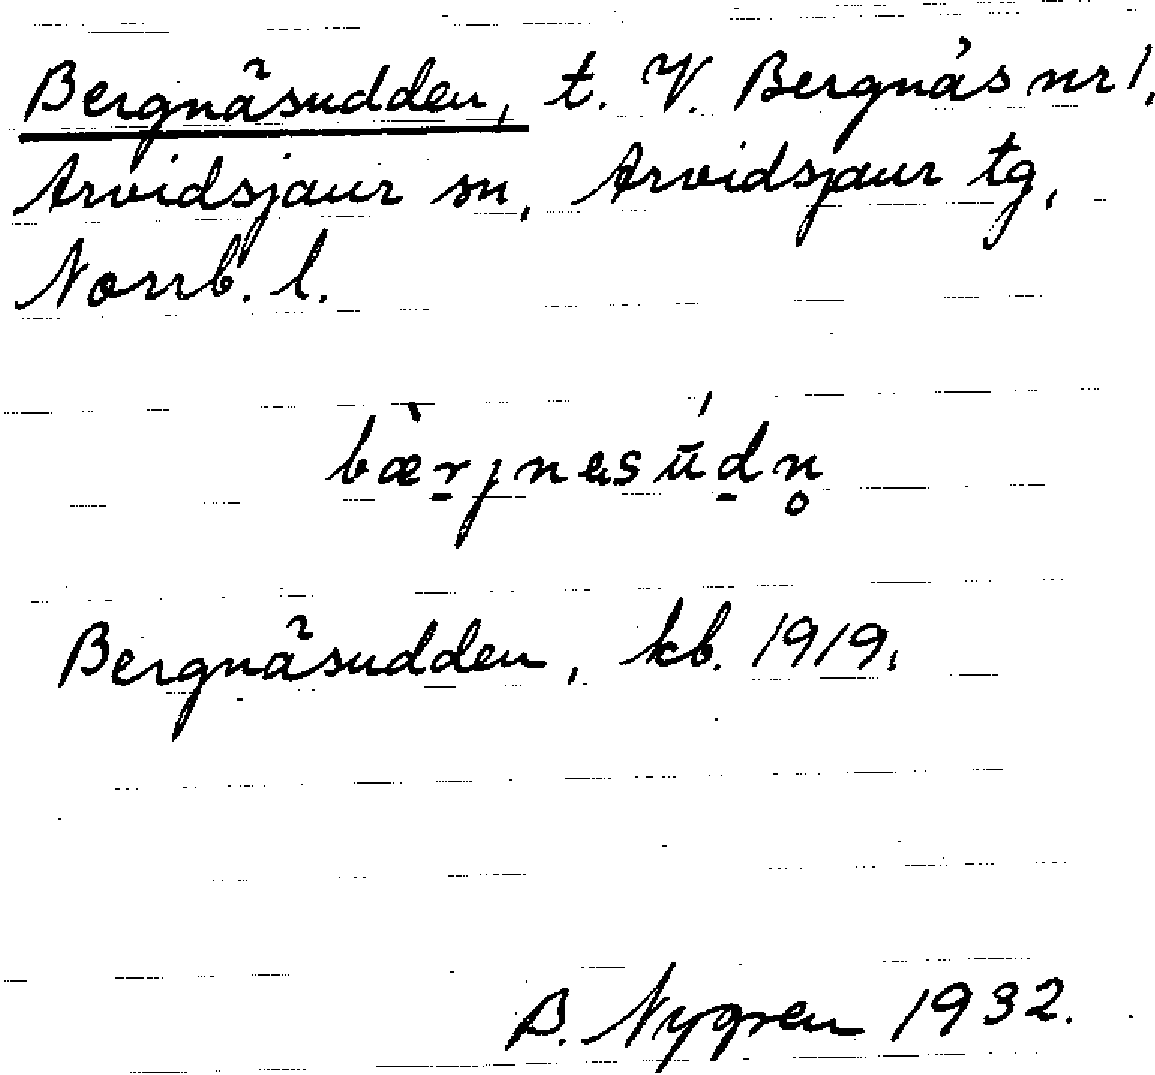 Bergnäsudden, t. V. Bergnäs nr 1,
Arvidsjaur sn, Arvidsjaur tg,
Norrb. l.
bæ̀r̠jnesū́d̠n̥
Bergnäsudden, kb. 1919.
B. Nygren 1932.